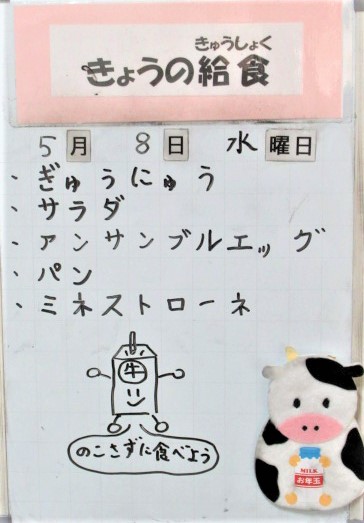 きゅうしょく
きょうの給食
5月 8日 水曜日
・ぎゅうにゅう
・サラダ
・アンサンブルエッグ
・パン
・ミネストローネ
牛
のこさずに食べよう
MILK
お年玉